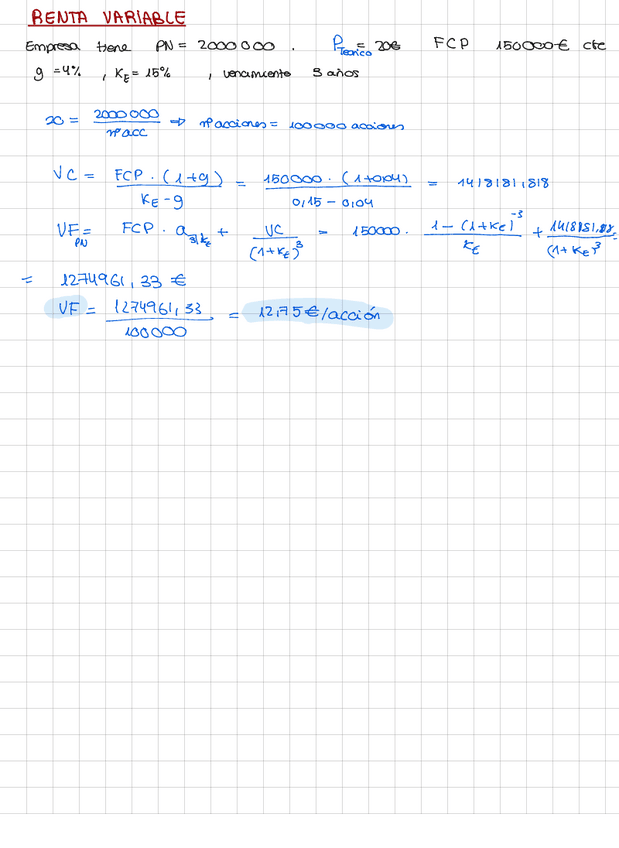 RENTA VARIABLE
Empresa tiene PN = 2000000 . P Teorico = 20€ FCP 150000€ cte
g = 4% , KE = 15% , vencimiento 3 años
20 = 2000000 / nº acc ⇒ nº acciones = 100000 acciones
VC = FCP · (1+g) / KE - g = 150000 · (1+0,04) / 0,15 - 0,04 = 1418181,818
VF PN = FCP · a 3|KE + VC / (1+KE)^3 = 150000 · 1-(1+KE)^-3 / KE + 1418181,82 / (1+KE)^3 =
= 1274961,33 €
VF = 1274961,33 / 100000 = 12,75 €/acción